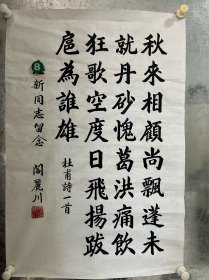 秋來相顧尚飄蓬未
就丹砂愧葛洪痛飲
狂歌空度日飛揚跋
扈為誰雄
杜甫詩一首
新同志留念
閻麗川